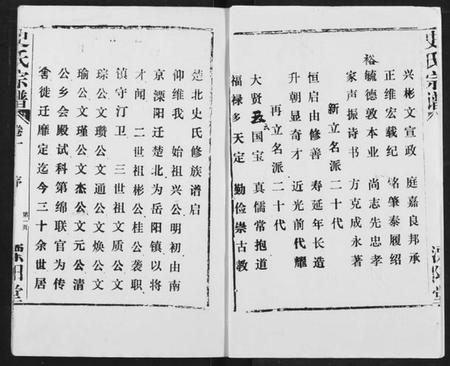 史氏宗譜
興彬文宣政 庭嘉良邦承
正維宏載紀 名肇泰履紹
裕毓德敦本业 尚志先忠孝
家声振诗书 方克成永著
新立名派二十代
恒启由修善 寿延年长造
升朝显奇才 近光前代耀
再立名派二十代
大贤 国宝 真儒常抱道
福禄多天定 勤俭崇古教
溧阳堂
史氏宗譜
卷一 序 第一頁
溧阳堂
楚北史氏修族谱启
仰维我 始祖兴公明初由南
京溧阳迁楚北为岳阳镇以将
才闻 二世祖彬公桂公袭职
镇守汀卫 三世祖文质公文
琮公文瓒公文通公文焕公文
瑜公文瑾公文杰公文元公清
公乡会殿试科第绵联官为传
舍徙迁靡定迄今三十余世居